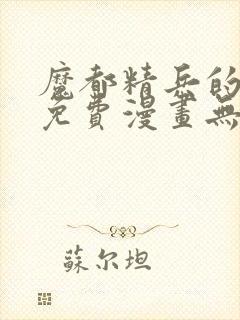 魔都精兵的
免費漫畫無
蘇尔坦